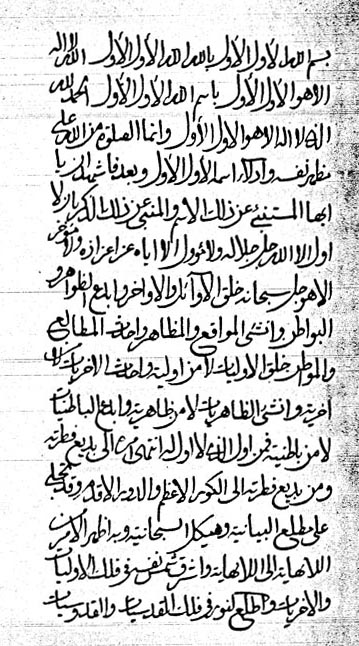 بسم الله الاول الاول بالله الله الاول الاول الله لا اله
الا هو الاول الاول باسم الله الاول الاول الحمد لله
الذي لا اله الا هو الاول الاول وانما الصلوة من الله على
مظهر نفسه وادلاء اسمه الاول الاول وبعد فاشهد
ايها المستنبئ عن ذلك الاسم والمنبئ عن ذلك الذكر بان لا
اول الا الله جل جلاله ولا مؤول الا اياه عز اعزازه ولا مؤخر
الا هو جل سبحانه خلق الاوائل والاواخر وابدع الظواهر و
البواطن وانشئ المواقع والمظاهر واحدث المطالع
والمواطن خلق الاوليات لا من اولية واحدث الاخريات لا من
اخرية وانشئ الظاهريات لا من ظاهرية وابدع الباطنيات
لا من باطنية فمن اول الذي لا اول له الى بديع فطرته
ومن بديع فطرته الى الكور الاعظم والدورة الاقدم وقد تجلى
على مطلع البيانية وهيكل السبحانية وبه اظهر الامر من
اللانهاية الى اللانهاية واشرق شمس نفسه في فلك الاوليات
والاخريات واطلع نوره في فلك القدسيات والقدوسيات